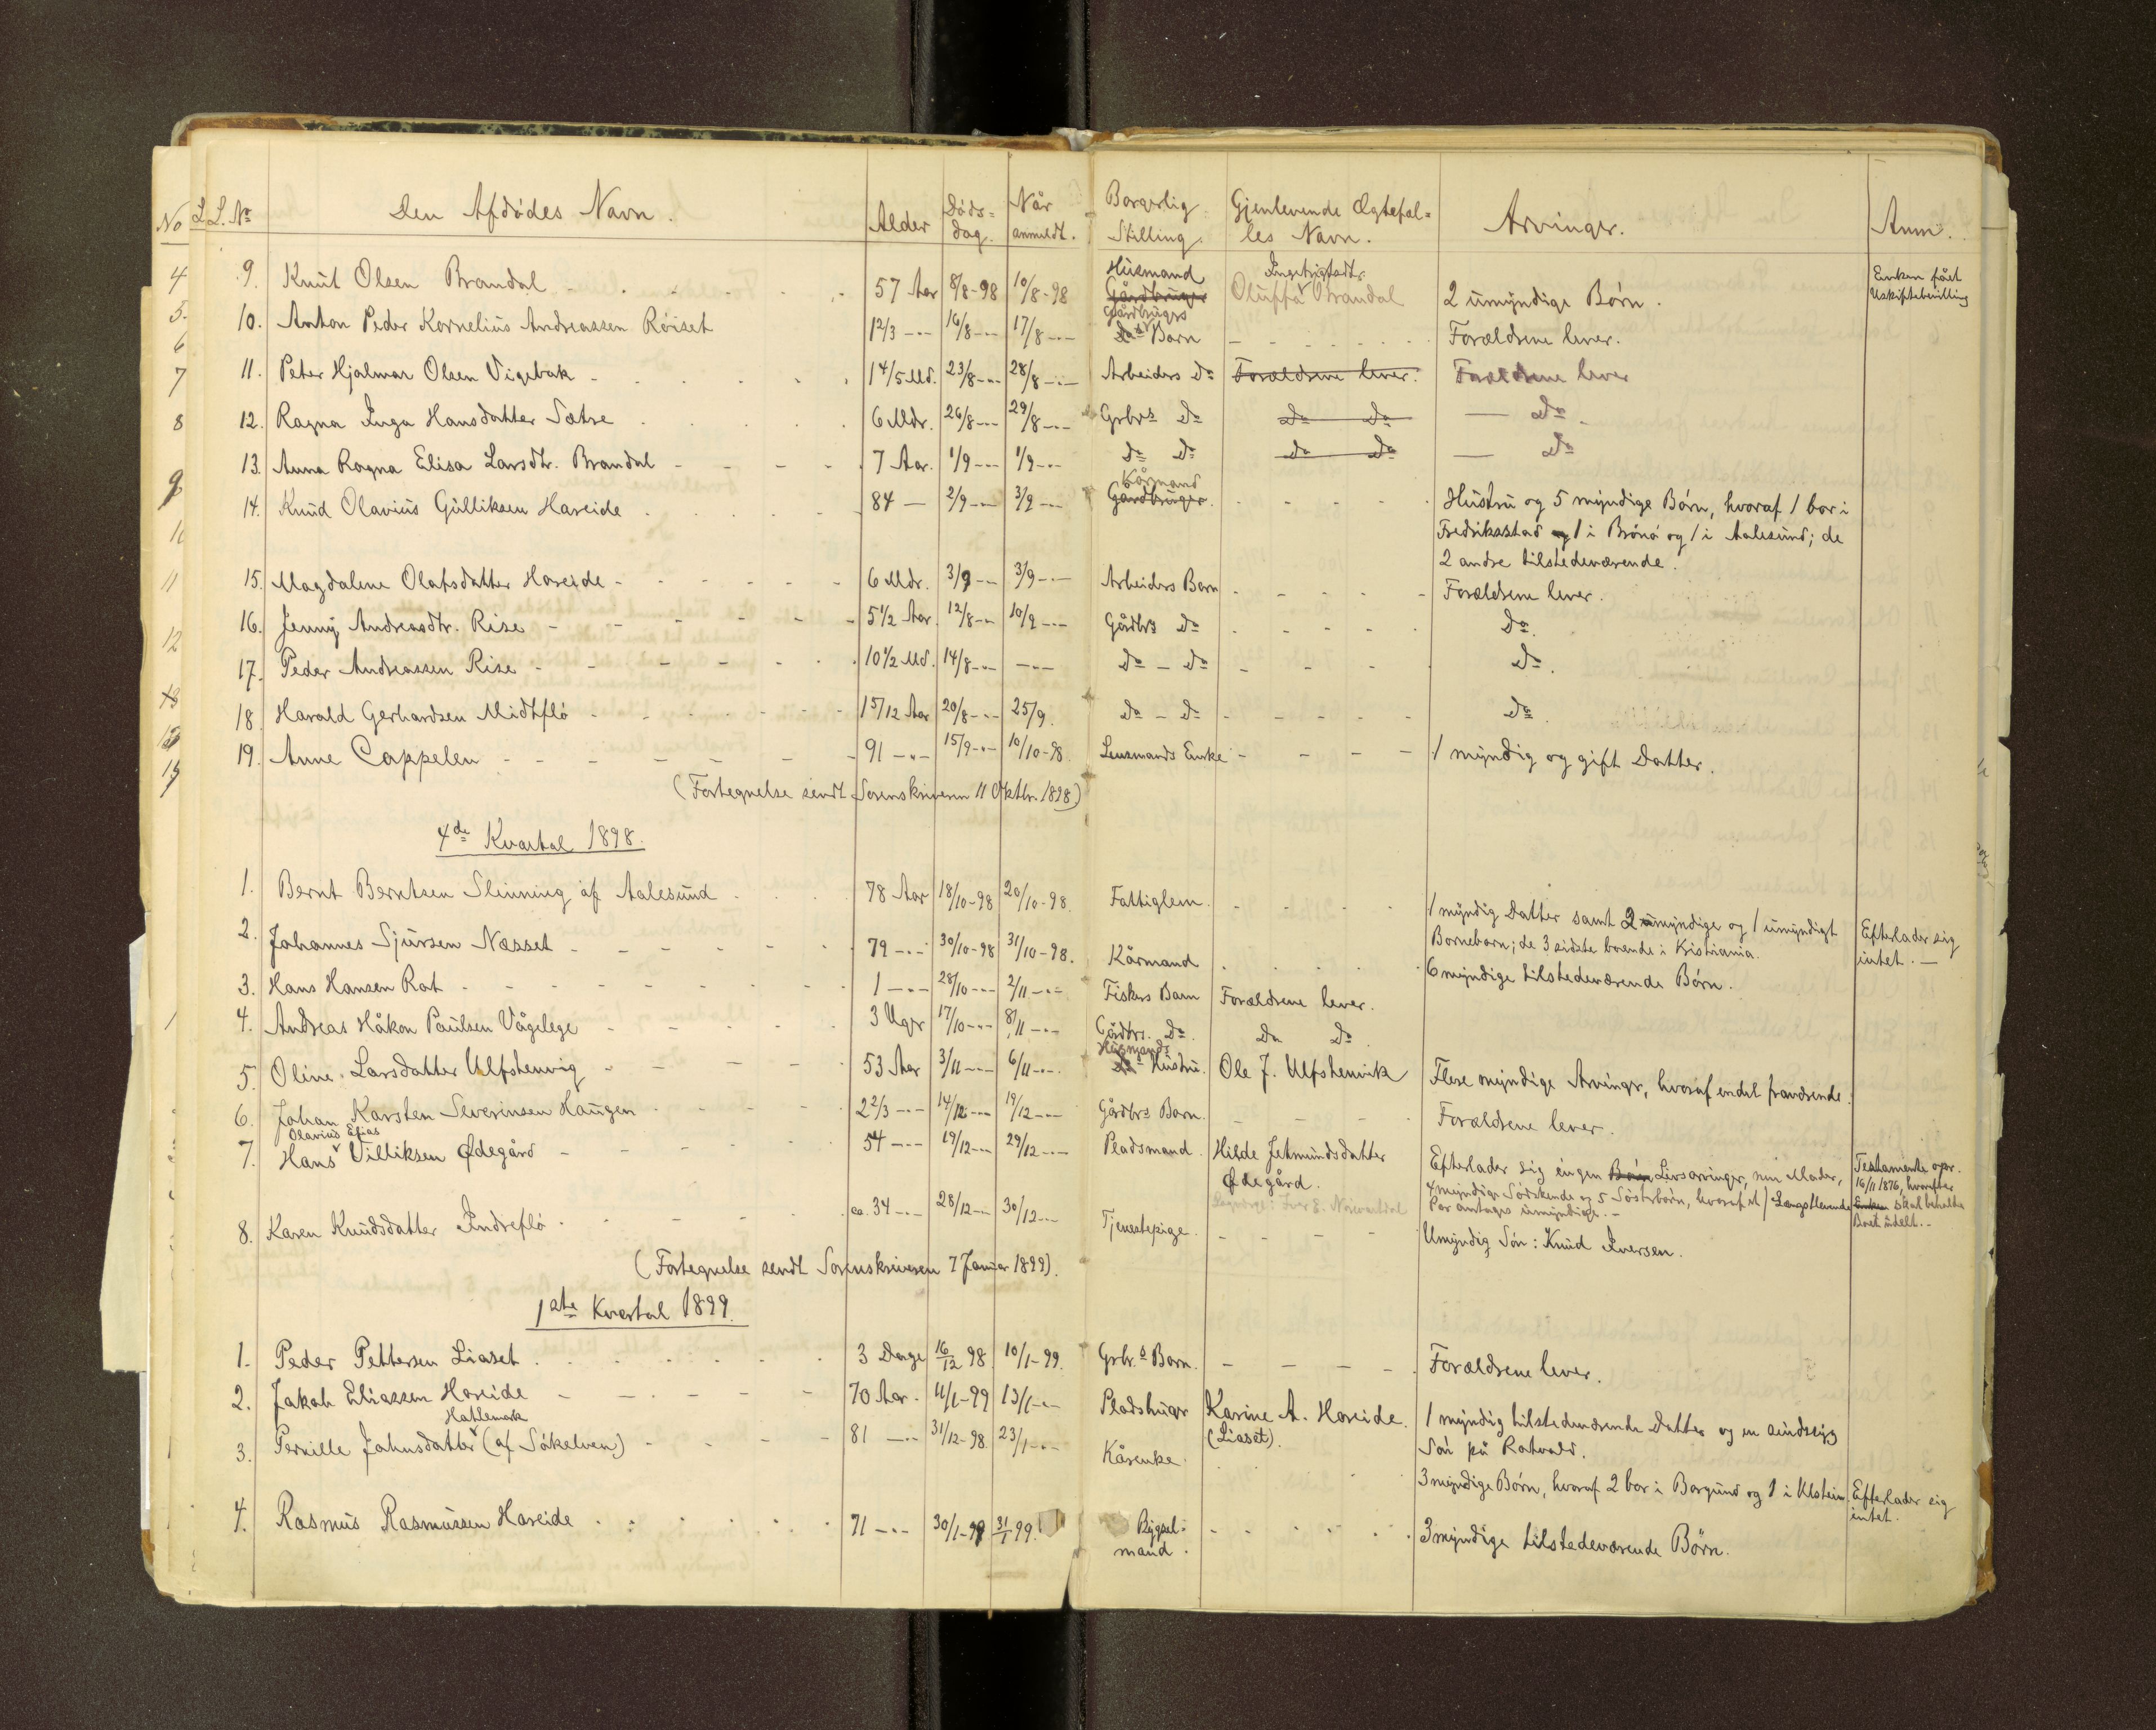 L. No Den Afdødes Navn. Alder Døds-dag. Når anmeldt. Borgerlig Stilling. Gjenlevende Ægtefælles Navn. Arvinger. Anm.
9. Knut Olsen Brandal 57 Aar 8/8-98 10/8-98 Husmand Gårdbruger Oluffa Ingebrigtsdtr. Brandal 2 umyndige Børn. Enken fået Uskiftebevilling
10. Anton Peder Kornelius Andreassen Röiset 1 2/3 -"- 16/8 -"- 17/8 -"- Gårdbrugers Do Barn - Forældrene lever.
11. Peter Hjalmar Olsen Vigebak 1 4/5 Md. 23/8 -"- 28/8 -"- Arbeiders Do Forældrene lever. Forældrene lever
12. Ragna Inga Hansdatter Sætre 6 Mdr. 26/8 -"- 29/8 -"- Grbrs Do Do Do — Do
13. Anna Ragna Elisa Larsdtr. Brandal 7 Aar. 1/9 -"- 1/9 -"- Do Do Do Do — Do
14. Knud Olavius Gulliksen Hareide 84 — 2/9 -"- 3/9 -"- Kårmand Gårdbruger. Hustru og 5 myndige Børn, hvoraf 1 bor i
Fredriksstad og 1 i Brönö og 1 i Aalesund; de
2 andre tilstedeværende.
15. Magdalene Olafsdatter Hareide 6 Mdr. 3/9 -"- 3/9 -"- Arbeiders Barn Forældrene lever.
16. Jenny Andreasdtr. Rise 5 1/2 Aar. 12/8 -"- 10/9 -"- Gårdbrs Do Do.
17. Peder Andreassen Rise 10 1/2 Md. 14/8 -"- -"- Do - Do Do.
18 Harald Gerhardsen Midtflö 1 5/12 Aar 20/8 -"- 25/9. Do - Do Do.
19. Anne Cappelen 91 -"- 15/9 -"- 10/10-98 Lensmands Enke 1 myndig og gift Datter.
(Fortegnelse sendt Sorenskriveren 11 Oktbr. 1898)
4de Kvartal 1898.
1. Bernt Berntsen Slinning af Aalesund 78 Aar 18/10-98 20/10-98. Fattiglem. 1 myndig Datter samt 2 umyndige og 1 umyndigt
Bornebarn; de 3 sidste boende i Kristiania. Efterlader sig intet. —
2. Johannes Sjursen Næsset 79 -"- 30/10-98 31/10-98. Kårmand 6 myndige tilstedeværende Børn.
3. Hans Hansen Rot 1 -"- 28/10 -"- 2/11 -"- Fiskers Barn Forældrene lever.
4. Andreas Håkon Paulsen Vågelege 3 Uger 17/10 -"- 8/11 -"- Gårdbrs. Do. Do Do.
5. Oline Larsdatter Ulfstenvig 53 Aar 3/11 -"- 6/11 -"- Husmands Do Hustru. Ole J. Ulfstenvik Flere myndige Arvinger, hvoraf endel fraværende.
6. Johan Karsten Severinsen Haugen 2 2/3 -"- 14/12 -"- 19/12 -"- Gårdbrs Barn. Forældrene lever.
7. Hans Olavius Elias Villiksen Ødegård 54 -"- 19/12 -"- 29/12 -"- Pladsmand Hilde Jetmundsdatter Ødegård. Efterlader sig ingen Børn Livsarvinger, men Moder,
4 myndige Södskende og 5 Söstebørn, hvoraf et Par antages umyndige. - Testamente opr. 16/11 1876, hvorefter Længstlevende Enken skal beholde Boet udelt. -
8. Karen Knudsdatter Indreflö ca. 34 -"- 28/12 -"- 30/12 -"- Tjenestepige Umyndig Sön: Knud Iversen.
(Fortegnelse sendt Sorenskriveren 7 Januar 1899).
1ste Kvartal 1899.
1. Peder Pettersen Liaset 3 Dage 16/12 98 10/1-99. Grbr.s Barn. Forældrene lever.
2. Jakob Eliassen Hareide 70 Aar. 11/1-99 13/1 -"- Pladshuger Karine A. Hareide (Liaset). 1 myndig tilstedeværende Datter og en sindssyg
Sön på Rotvold.
3. Pernille Johnsdatter Hatlemark (af Sökelven) 81 -"- 31/12-98 23/1 -"- Kårenke. 3 myndige Børn, hvoraf 2 bor i Borgund og 1 i Ulstein. Efterlader sig intet.
4. Rasmus Rasmussen Hareide 71 -"- 30/1-99 31/1 99. Bygselmand. 3 myndige tilstedeværende Børn.